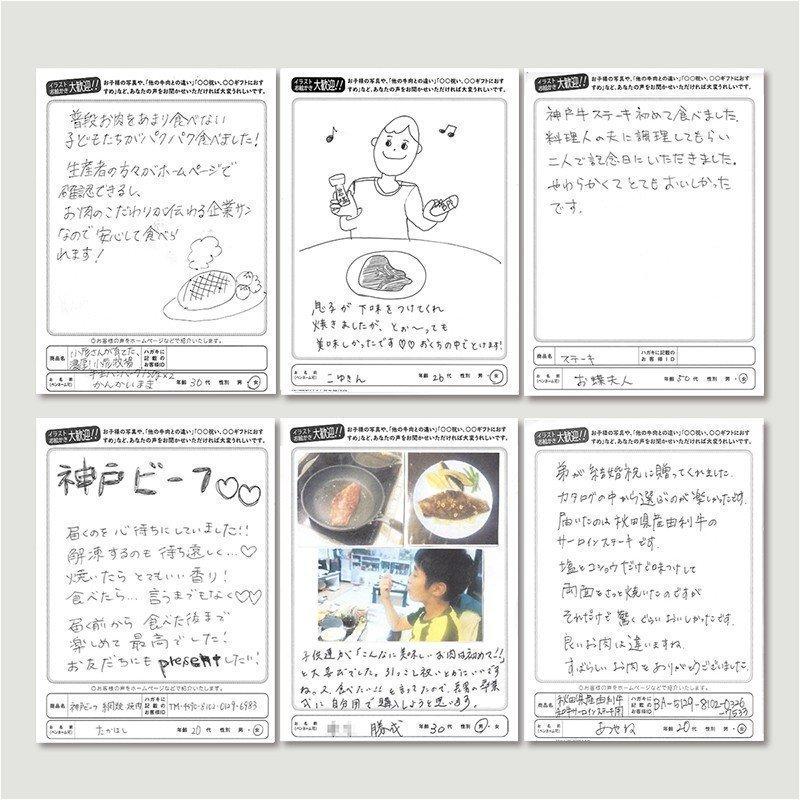 イラスト
お絵かき 大歓迎!!
お子様の写真や、「他の牛肉との違い」「〇〇祝い、〇〇ギフトにおす
すめ」など、あなたの声をお聞かせいただければ大変うれしいです。
普段お肉をあまり食べない
子どもたちがパクパク食べました！
生産者の方々がホームページで
確認できるし、
お肉のこだわりが伝わる企業サン
なので安心して食べら
れます！
◎お客様の声をホームページなどで紹介いたします。
商品名
小形さんが育てた、
ハガキに
記載の
お客様ID
お名前
(ペンネーム可)
かんかいまき
年齢 30代 性別 男・女
イラスト
お絵かき 大歓迎!!
お子様の写真や、「他の牛肉との違い」「〇〇祝い、〇〇ギフトにおす
すめ」など、あなたの声をお聞かせいただければ大変うれしいです。
息子が下味をつけてくれ
焼きましたが、とぉ〜っても
美味しかったです♡♡おくちの中でとけます!
お名前
(ペンネーム可)
こゆきん
年齢 26代 性別 男・女
イラスト
お絵かき 大歓迎!!
お子様の写真や、「他の牛肉との違い」「〇〇祝い、〇〇ギフトにおす
すめ」など、あなたの声をお聞かせいただければ大変うれしいです。
神戸牛ステーキ初めて食べました。
料理人の夫に調理してもらい
二人で記念日にいただきました。
やわらかくてとてもおいしかった
です。
商品名
ステーキ
ハガキに
記載の
お客様ID
お名前
(ペンネーム可)
お蝶夫人
年齢 50代 性別 男・女
イラスト
お絵かき 大歓迎!!
お子様の写真や、「他の牛肉との違い」「〇〇祝い、〇〇ギフトにおす
すめ」など、あなたの声をお聞かせいただければ大変うれしいです。
神戸ビーフ♡♡
届くのを心待ちにしていました!!
解凍するのも待ち遠しく…♡
焼いたらとてもいい香り！
食べたら…言うまでもなく♡♡
届く前から食べた後まで
楽しめて最高でした！
お友だちにもpresentしたい！
◎お客様の声をホームページなどで紹介いたします。
商品名
神戸ビーフ 網焼 焼肉
ハガキに
記載の
お客様ID
TM-4590-8102-0129-6983
お名前
(ペンネーム可)
たかはし
年齢 20代 性別 男・女
イラスト
お絵かき 大歓迎!!
お子様の写真や、「他の牛肉との違い」「〇〇祝い、〇〇ギフトにおす
すめ」など、あなたの声をお聞かせいただければ大変うれしいです。
子供達が「こんなに美味しいお肉は初めて!!」
と大喜びでした。引っこし祝いとかにいいです
ね。又、食べたい!!と言ってたので、長男の卒業
式に自分用で購入しようと思います。
お名前
(ペンネーム可)
勝成
年齢 30代 性別 男・女
イラスト
お絵かき 大歓迎!!
お子様の写真や、「他の牛肉との違い」「〇〇祝い、〇〇ギフトにおす
すめ」など、あなたの声をお聞かせいただければ大変うれしいです。
弟が結婚祝に贈ってくれました。
カタログの中から選ぶのが楽しかったです。
届いたのは秋田県産由利牛の
サーロインステーキです。
塩とコショウだけで味つけして
両面をさっと焼いたのですが
それだけで驚くぐらいおいしかったです。
良いお肉は違いますね。
すばらしいお肉をありがとうございました。
◎お客様の声をホームページなどで紹介いたします。
商品名
秋田県産由利牛
ハガキに
記載の
お客様ID
BA-5129-8102-0326
-7533
お名前
(ペンネーム可)
あやね
年齢 20代 性別 男・女